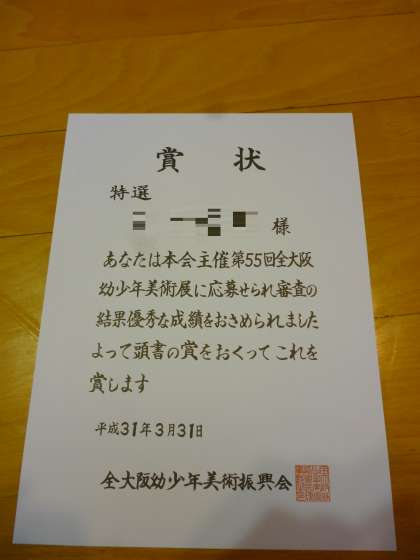 賞状
特選
様
あなたは本会主催第55回全大阪
幼少年美術展に応募せられ審査の
結果優秀な成績をおさめられました
よって頭書の賞をおくってこれを
賞します
平成31年3月31日
全大阪幼少年美術振興会